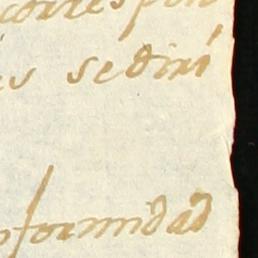 correspon
es se diri
nformidad